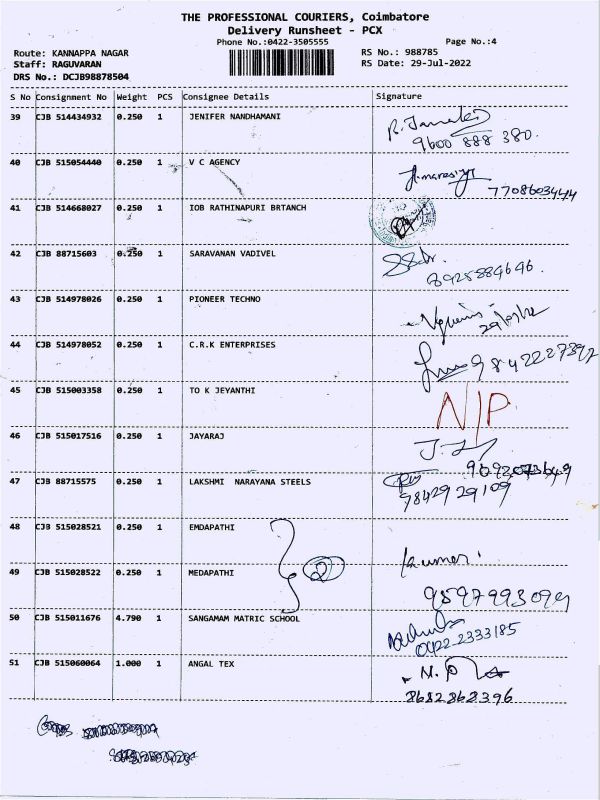 THE PROFESSIONAL COURIERS, Coimbatore
Delivery Runsheet - PCX
Phone No.:0422-3505555 Page No.:4
Route: KANNAPPA NAGAR RS No.: 988785
Staff: RAGUVARAN RS Date: 29-Jul-2022
DRS No.: DCJB98878504
S No Consignment No Weight PCS Consignee Details Signature
39 CJB 514434932 0.250 1 JENIFER NANDHAMANI
9600 888 380.
40 CJB 515054440 0.250 1 V C AGENCY
7708603444
41 CJB 514668027 0.250 1 IOB RATHINAPURI BRTANCH
42 CJB 88715603 0.250 1 SARAVANAN VADIVEL
8925884646.
43 CJB 514978026 0.250 1 PIONEER TECHNO
44 CJB 514978052 0.250 1 C.R.K ENTERPRISES
9842227392
45 CJB 515003358 0.250 1 TO K JEYANTHI N/P
46 CJB 515017516 0.250 1 JAYARAJ
47 CJB 88715575 0.250 1 LAKSHMI NARAYANA STEELS
98429 29109
48 CJB 515028521 0.250 1 EMDAPATHI
Kumar.
49 CJB 515028522 0.250 1 MEDAPATHI 2
9597993094
50 CJB 515011676 4.790 1 SANGAMAM MATRIC SCHOOL
0422-2333185
51 CJB 515060064 1.000 1 ANGAL TEX
8682862396